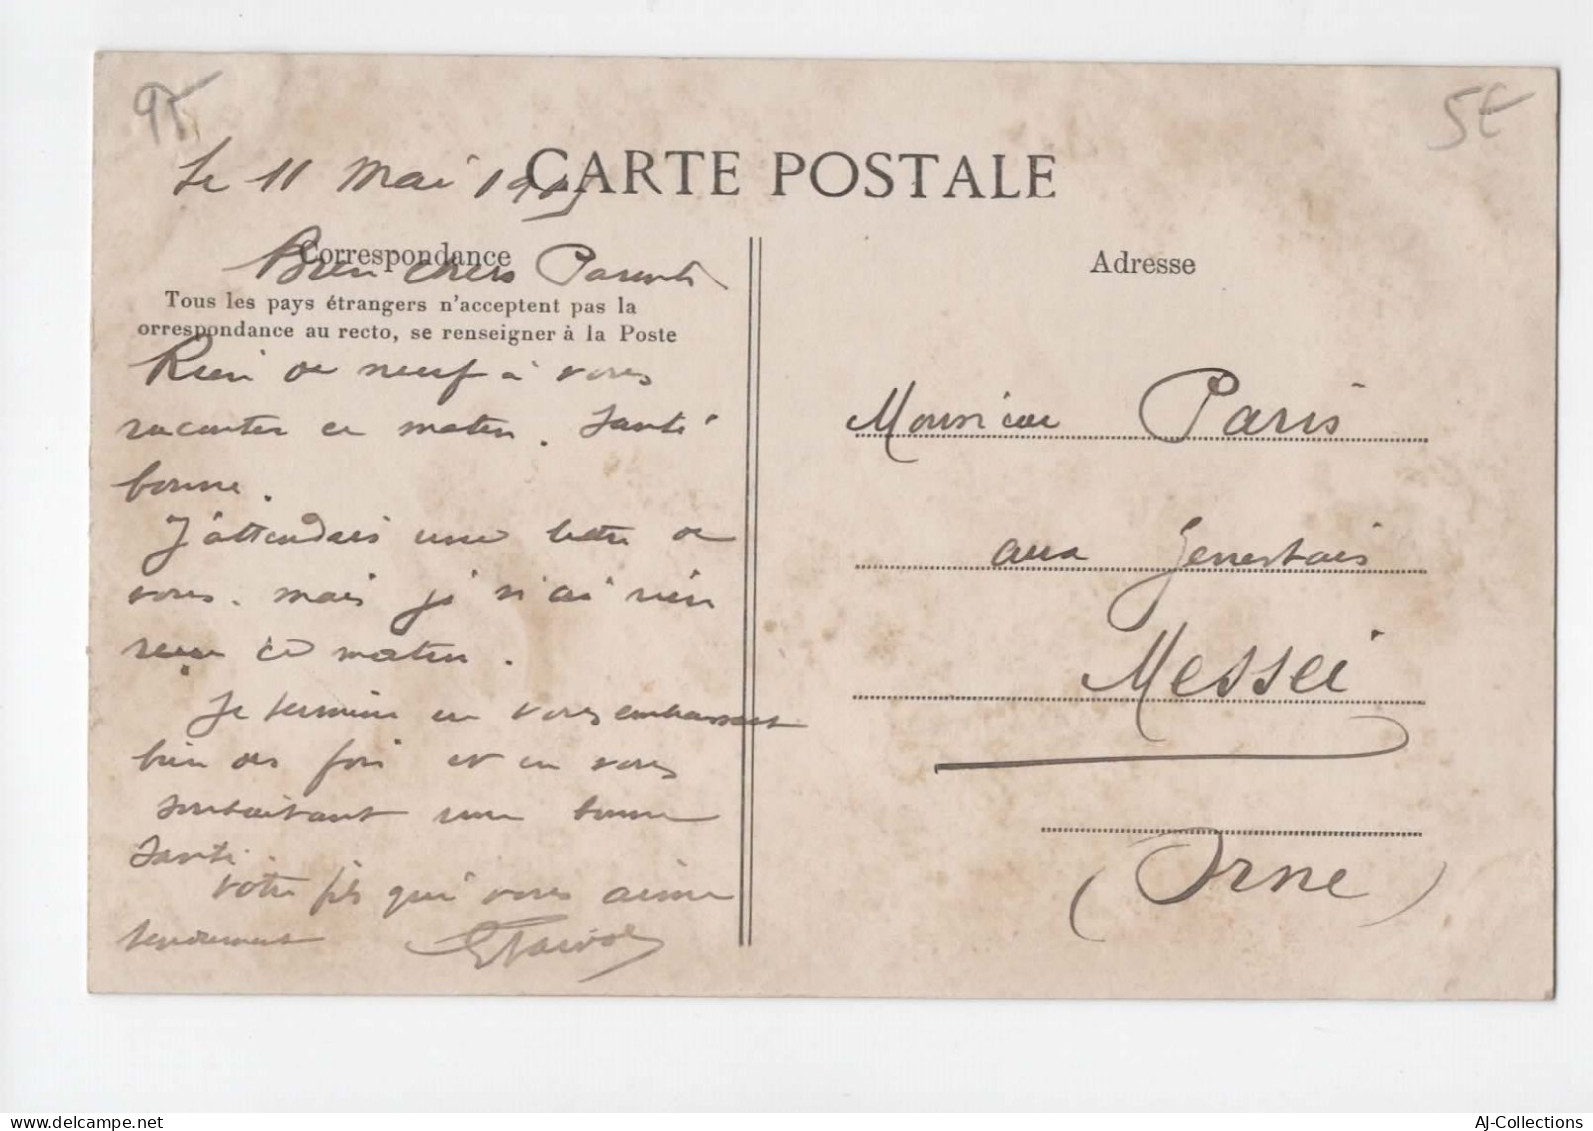 95
5€
Le 11 Mai 190
CARTE POSTALE
Correspondance
Bien chers Parents
Tous les pays étrangers n'acceptent pas la
orrespondance au recto, se renseigner à la Poste
Rien de neuf à vous
raconter ce matin. Santé
bonne.
J'attendais une lettre de
vous. mais je n'ai rien
reçu ce matin.
Je termine en vous embrassant
bien des fois et en vous
souhaitant une bonne
Santé.
Votre fils qui vous aime
tendrement
Adresse
Monsieur Paris
aux Genestais
Messei
(Orne)
AJ-Collections